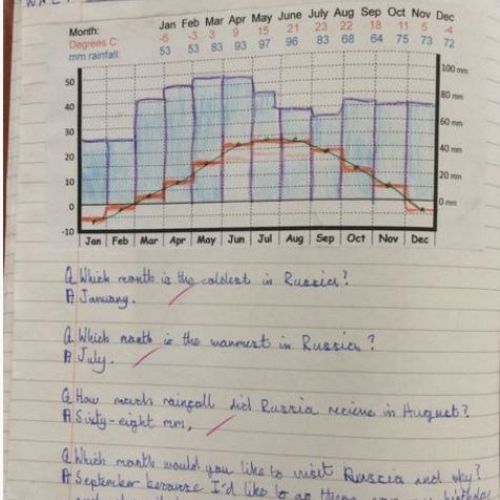 Month: Jan Feb Mar Apr May June July Aug Sep Oct Nov Dec
Degrees C -6 -3 3 9 15 21 23 22 18 11 5 -4
mm rainfall 53 53 83 93 97 96 83 68 64 75 73 72
50 100 mm
40 80 mm
30 60 mm
20 40 mm
10 20 mm
0 0 mm
-10
Jan Feb Mar Apr May Jun Jul Aug Sep Oct Nov Dec
Q Which month is the coldest in Russia?
A January.
Q Which month is the warmest in Russia?
A July.
Q How much rainfall did Russia recieve in August?
A Sixty-eight mm,
Q Which month would you like to visit Russia and why?
A September because I'd like to go there